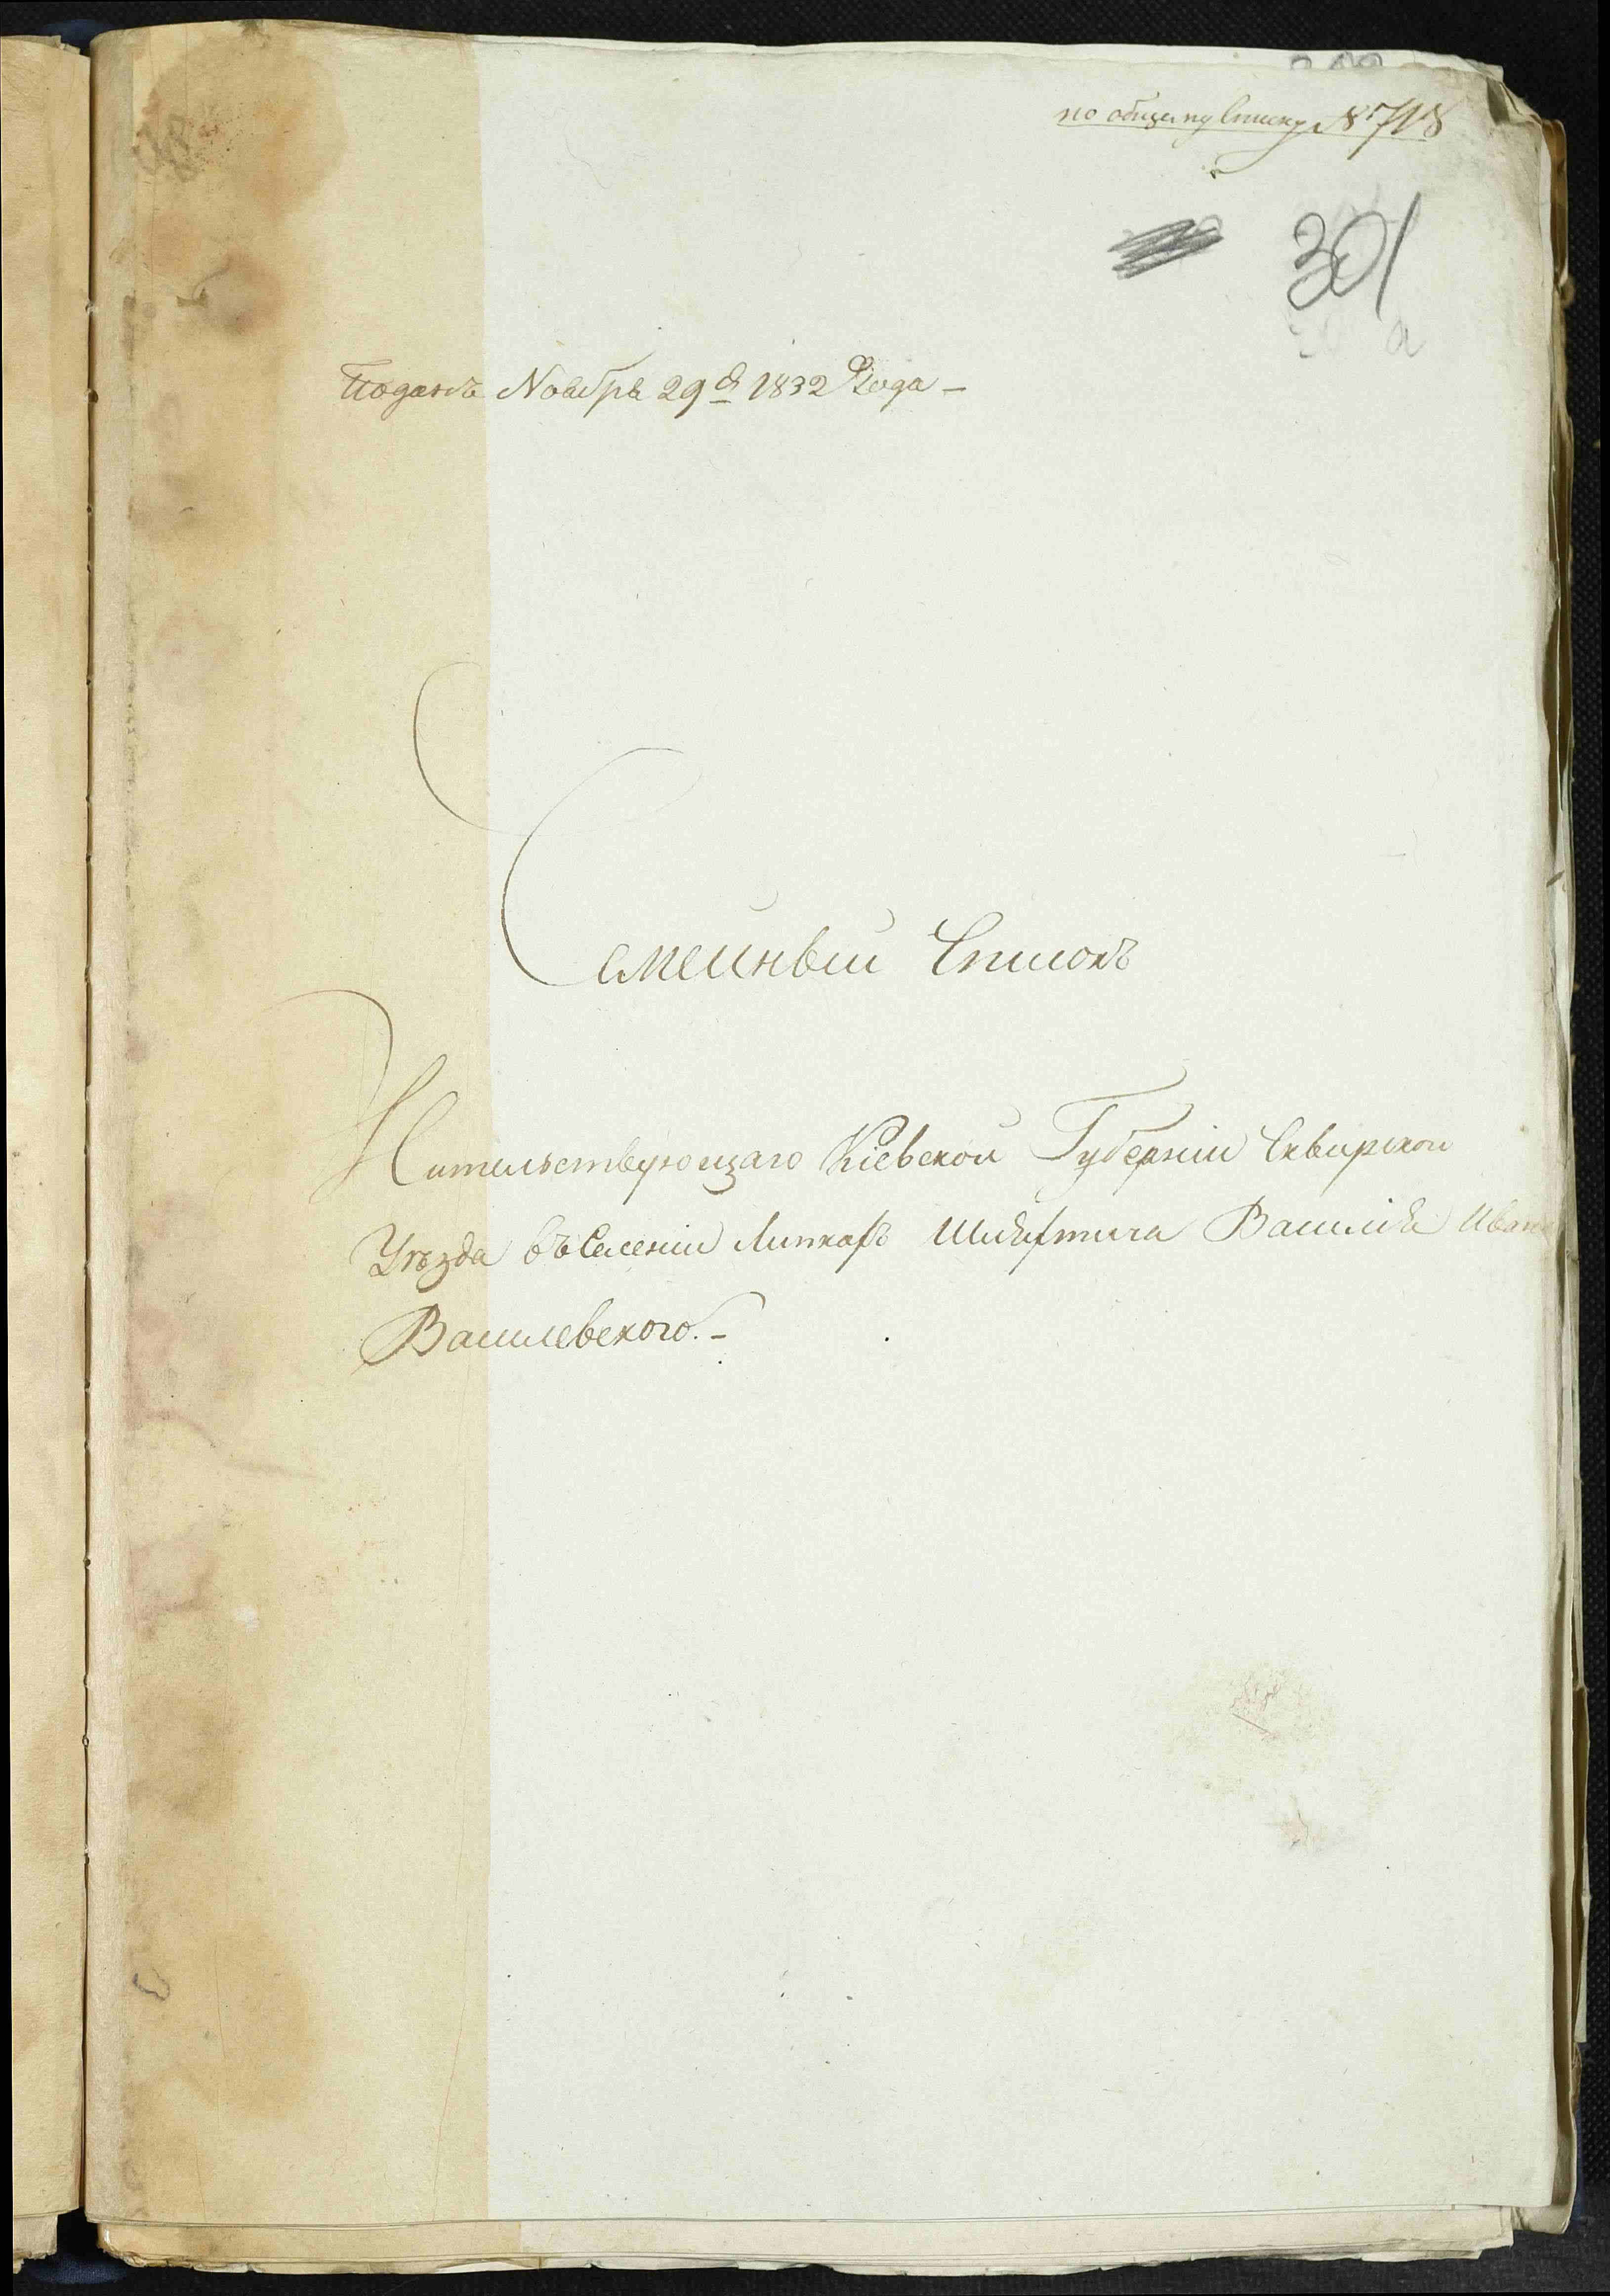 по общему Списку № 718
301
Поданъ Ноября 29 д 1832 Года –
Семейный Списокъ
Жительствующаго Кіевской Губерніи Сквирскои
Уѣзда въ Селеніи Липкахъ Шляхтича Василія Ивано
Василевского. –